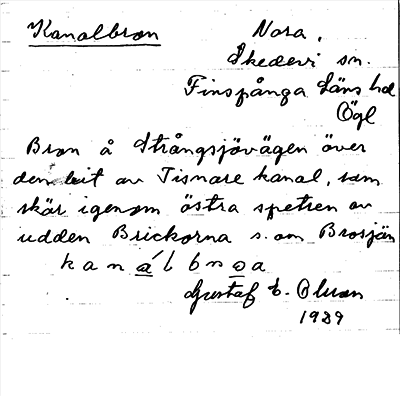 Kanalbron
Nora,
Skedevi sn.
Finspånga Läns hd
Ögl
Bron å Strångsjövägen över
den bit av Tisnare kanal, som
skär igenom östra spetsen av
udden Brickorna s. om Brosjön
k a n á l b r o a
Gustaf E. Olson
1929